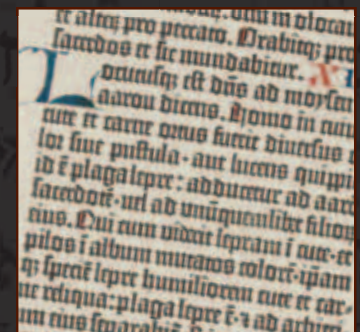 et alterũ pro peccato. Orabitq; pro
sacerdos et sic mundabitur. X
Locutusq; est dñs ad moysen
aaron dicens. Homo in cuius
cute et carne ortus fuerit diuersus
lor siue pustula · aut lucens quippi
id ẽ plaga lepre : adducetur ad aaron
sacerdotẽ · uel ad unũquemlibet filiorum
eius. Qui cum uiderit lepram ĩ cute · et
pilos ĩ album mutatos colorẽ · ip̃am
q; speciẽ lepre humiliorem cute et car-
ne reliqua : plaga lepre ẽ · ⁊ ad
um eius separabit᷒